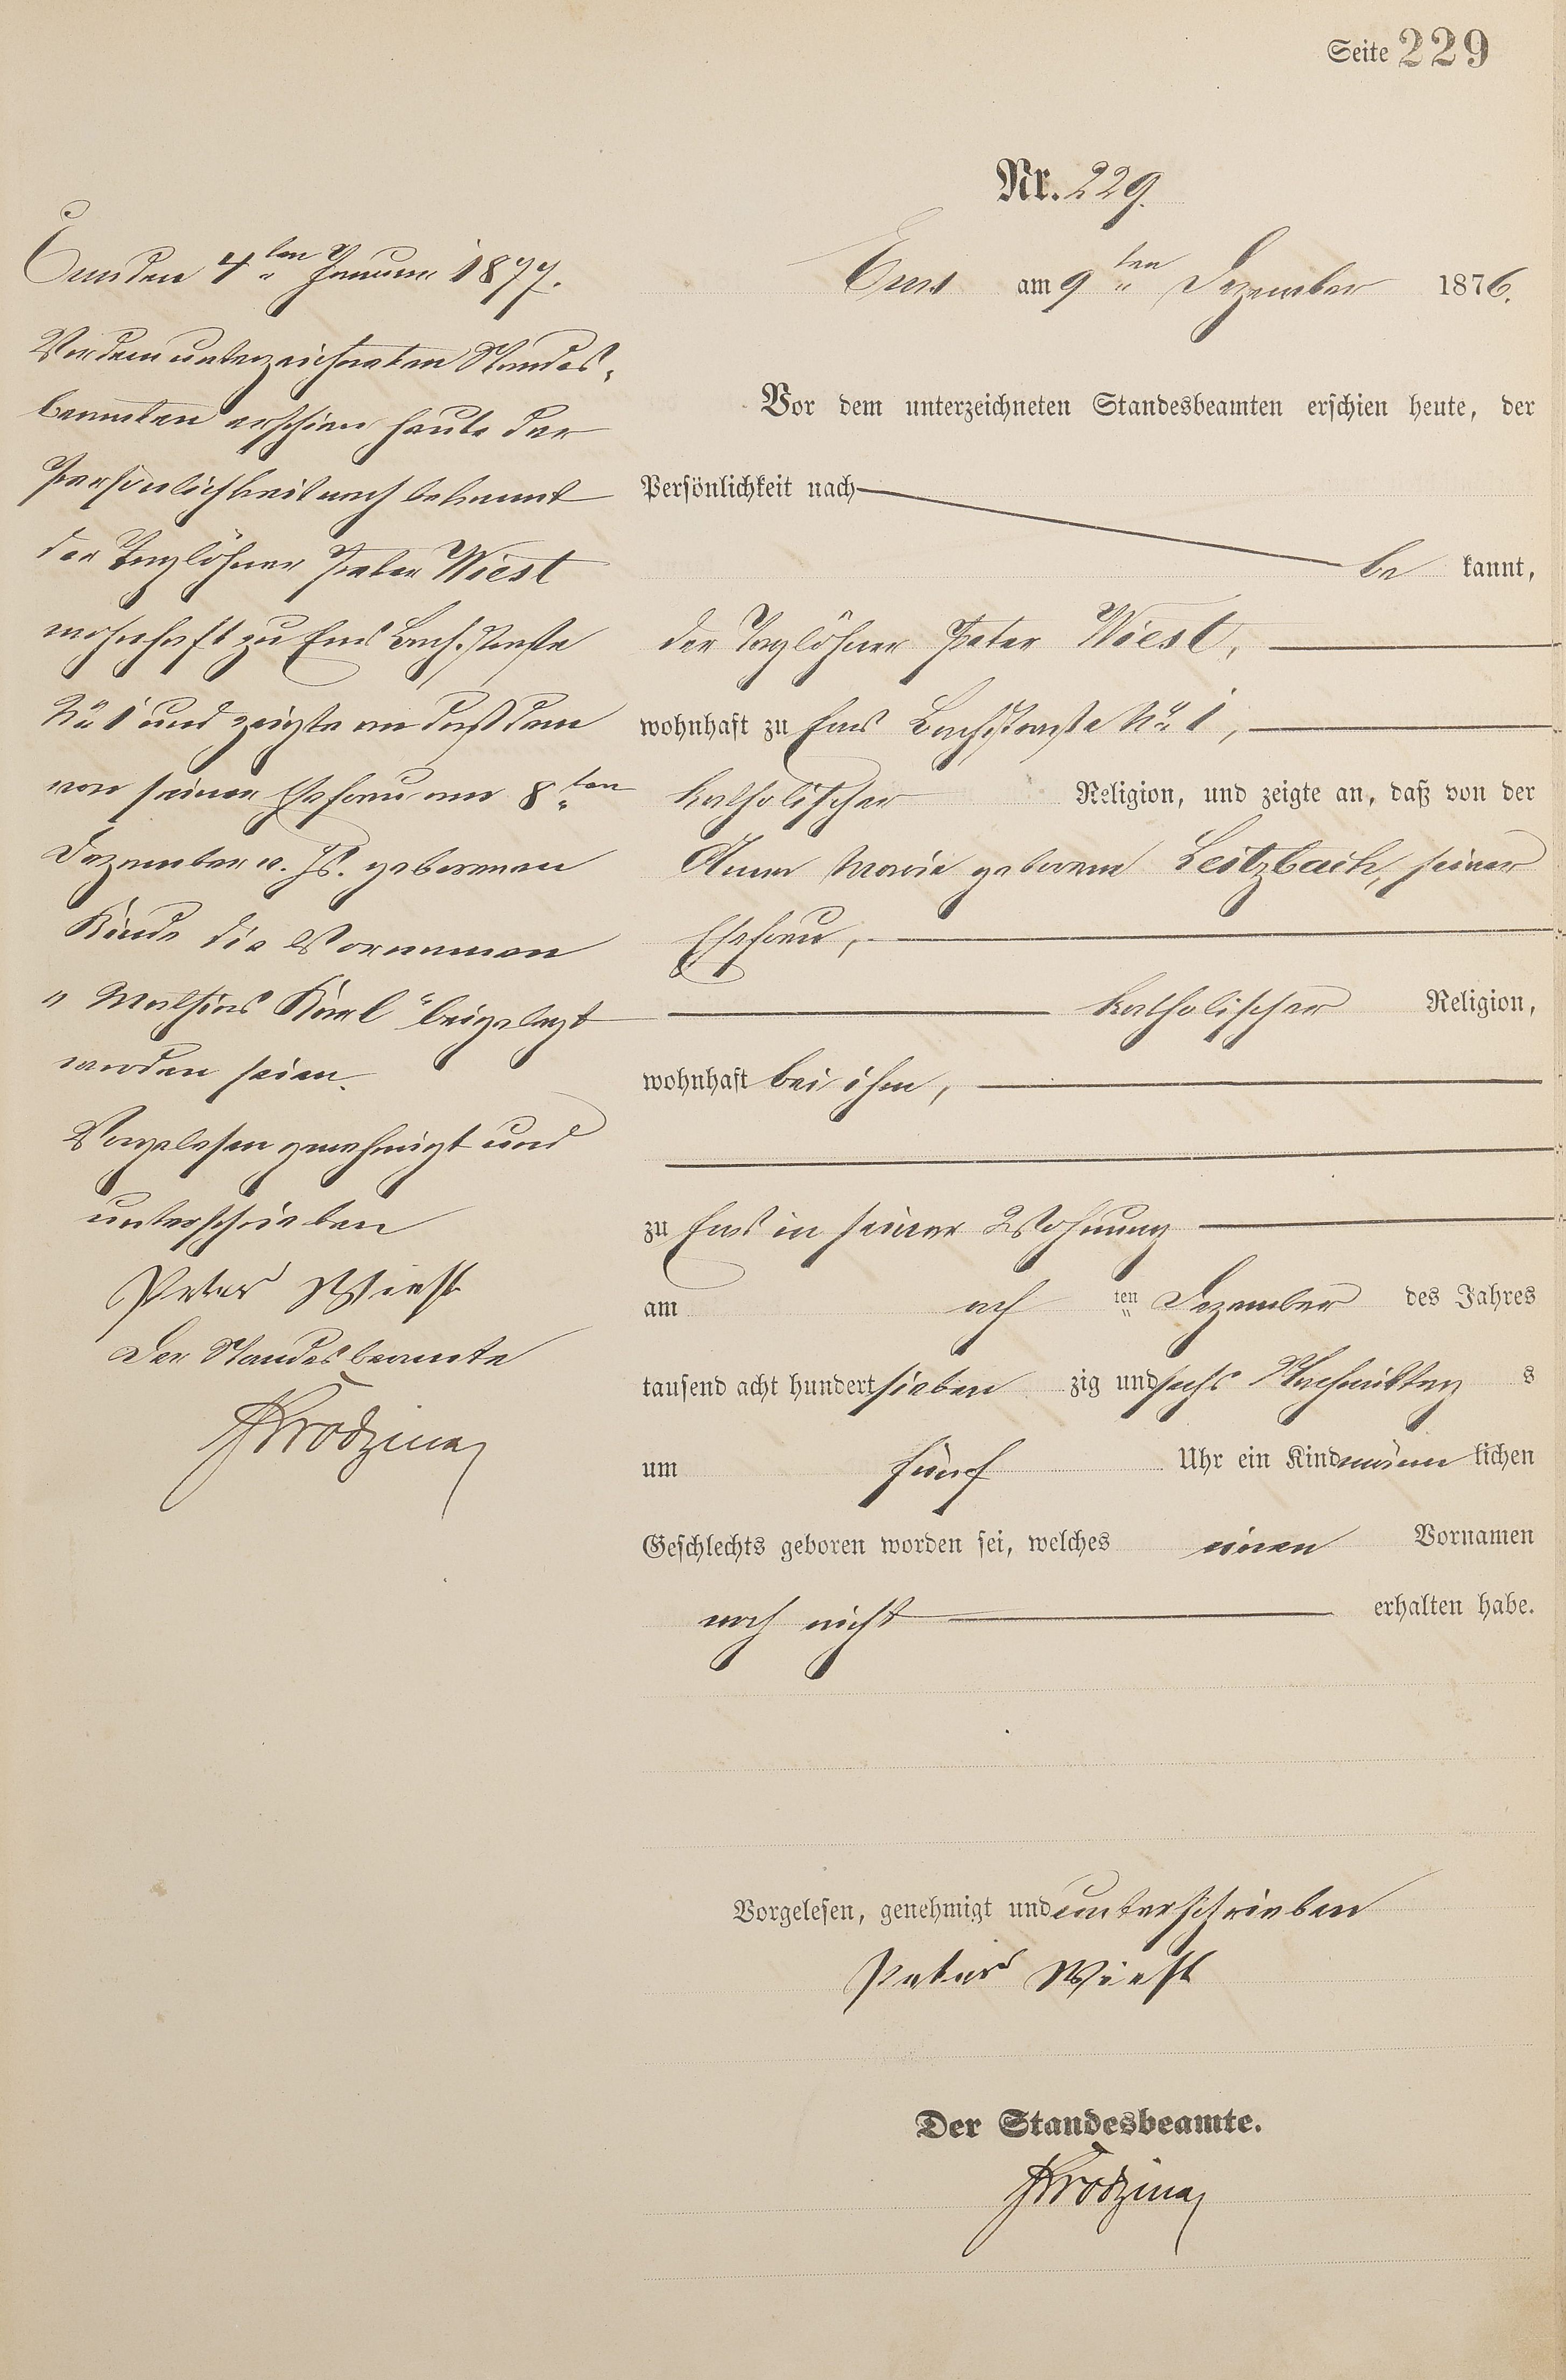 Seite 229
Nr. 229.
Ems am 9ten Dezember 1876.
Vor dem unterzeichneten Standesbeamten erschien heute, der
Persönlichkeit nach
bekannt,
der Taglöhner Peter Wiest,
wohnhaft zu Ems Bachstraße No 1,
katholischer Religion, und zeigte an, daß von der
Anna Maria geborene Leitzbach, seiner
Ehefrau,
katholischer Religion,
wohnhaft bei ihm,
zu Ems in seiner Wohnung
am acht ten Dezember des Jahres
tausend acht hundert sieben zig und sechs Nachmittag s
um fünf Uhr ein Kind männlichen
Geschlechts geboren worden sei, welches einen Vornamen
noch nicht erhalten habe.
Vorgelesen, genehmigt und unterschrieben
Peter Wiest
Der Standesbeamte.
Ems den 4ten Januar 1877.
Vor dem unterzeichneten Standes-
beamten erschien heute der
Persönlichkeit nach bekannt
der Taglöhner Peter Wiest
wohnhaft zu Ems Bachstraße
No 1 und zeigte an daß dem
von seiner Ehefrau am 8ten
Dezember v. Js. geborenen
Kinde die Vornamen
"Mathias Karl" beigelegt
worden seien.
Vorgelesen genehmigt und
unterschrieben
Peter Wiest
Der Standesbeamte